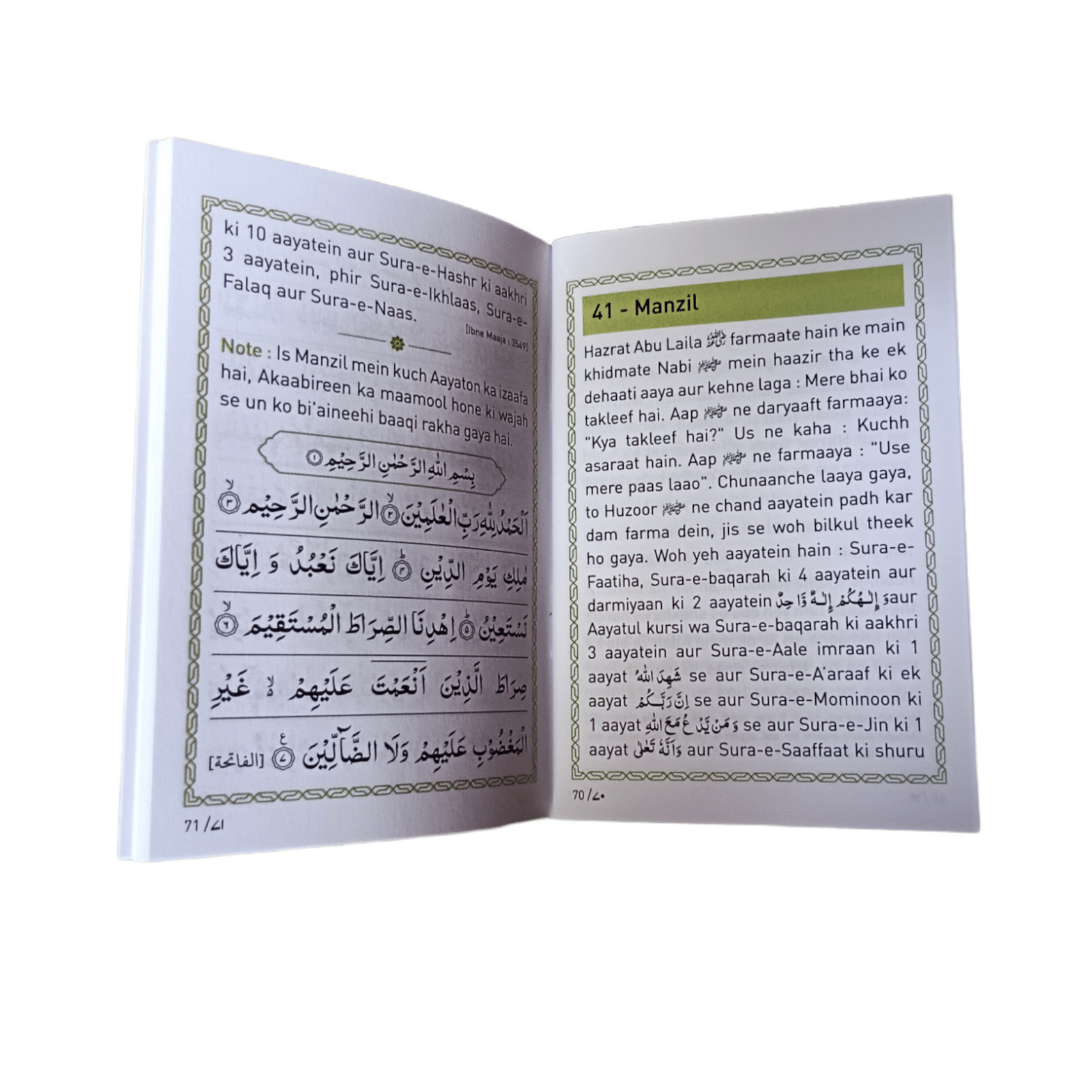 41 - Manzil
Hazrat Abu Laila رضی اللہ عنہ farmaate hain ke main
khidmate Nabi ﷺ mein haazir tha ke ek
dehaati aaya aur kehne laga : Mere bhai ko
takleef hai. Aap ﷺ ne daryaaft farmaaya:
"Kya takleef hai?" Us ne kaha : Kuchh
asaraat hain. Aap ﷺ ne farmaaya : "Use
mere paas laao". Chunaanche laaya gaya,
to Huzoor ﷺ ne chand aayatein padh kar
dam farma dein, jis se woh bilkul theek
ho gaya. Woh yeh aayatein hain : Sura-e-
Faatiha, Sura-e-baqarah ki 4 aayatein aur
darmiyaan ki 2 aayatein وَ اِلٰـهُكُمْ اِلٰـهٌ وَّاحِدٌ aur
Aayatul kursi wa Sura-e-baqarah ki aakhri
3 aayatein aur Sura-e-Aale imraan ki 1
aayat شَهِدَ اللّٰهُ se aur Sura-e-A'araaf ki ek
aayat اِنَّ رَبَّكُمْ se aur Sura-e-Mominoon ki
1 aayat وَمَنْ يَّدْعُ مَعَ اللّٰهِ se aur Sura-e-Jin ki 1
aayat وَاَنَّهٗ تَعٰلٰى aur Sura-e-Saaffaat ki shuru
70 /۷۰
ki 10 aayatein aur Sura-e-Hashr ki aakhri
3 aayatein, phir Sura-e-Ikhlaas, Sura-e-
Falaq aur Sura-e-Naas.
[Ibne Maaja : 3549]
Note : Is Manzil mein kuch Aayaton ka izaafa
hai, Akaabireen ka maamool hone ki wajah
se un ko bi'aineehi baaqi rakha gaya hai.
بِسْمِ اللّٰهِ الرَّحْمٰنِ الرَّحِيْمِ ۝۱
اَلْحَمْدُ لِلّٰهِ رَبِّ الْعٰلَمِيْنَ ۝۲ۙ الرَّحْمٰنِ الرَّحِيْمِ ۝۳ۙ
مٰلِكِ يَوْمِ الدِّيْنِ ۝۴ؕ اِيَّاكَ نَعْبُدُ وَ اِيَّاكَ
نَسْتَعِيْنُ ۝۵ؕ اِهْدِنَا الصِّرَاطَ الْمُسْتَقِيْمَ ۝۶ۙ
صِرَاطَ الَّذِيْنَ اَنْعَمْتَ عَلَيْهِمْ ۙ غَيْرِ
الْمَغْضُوْبِ عَلَيْهِمْ وَلَا الضَّآلِّيْنَ ۝۷ۧ [الفاتحة]
71 /۷۱